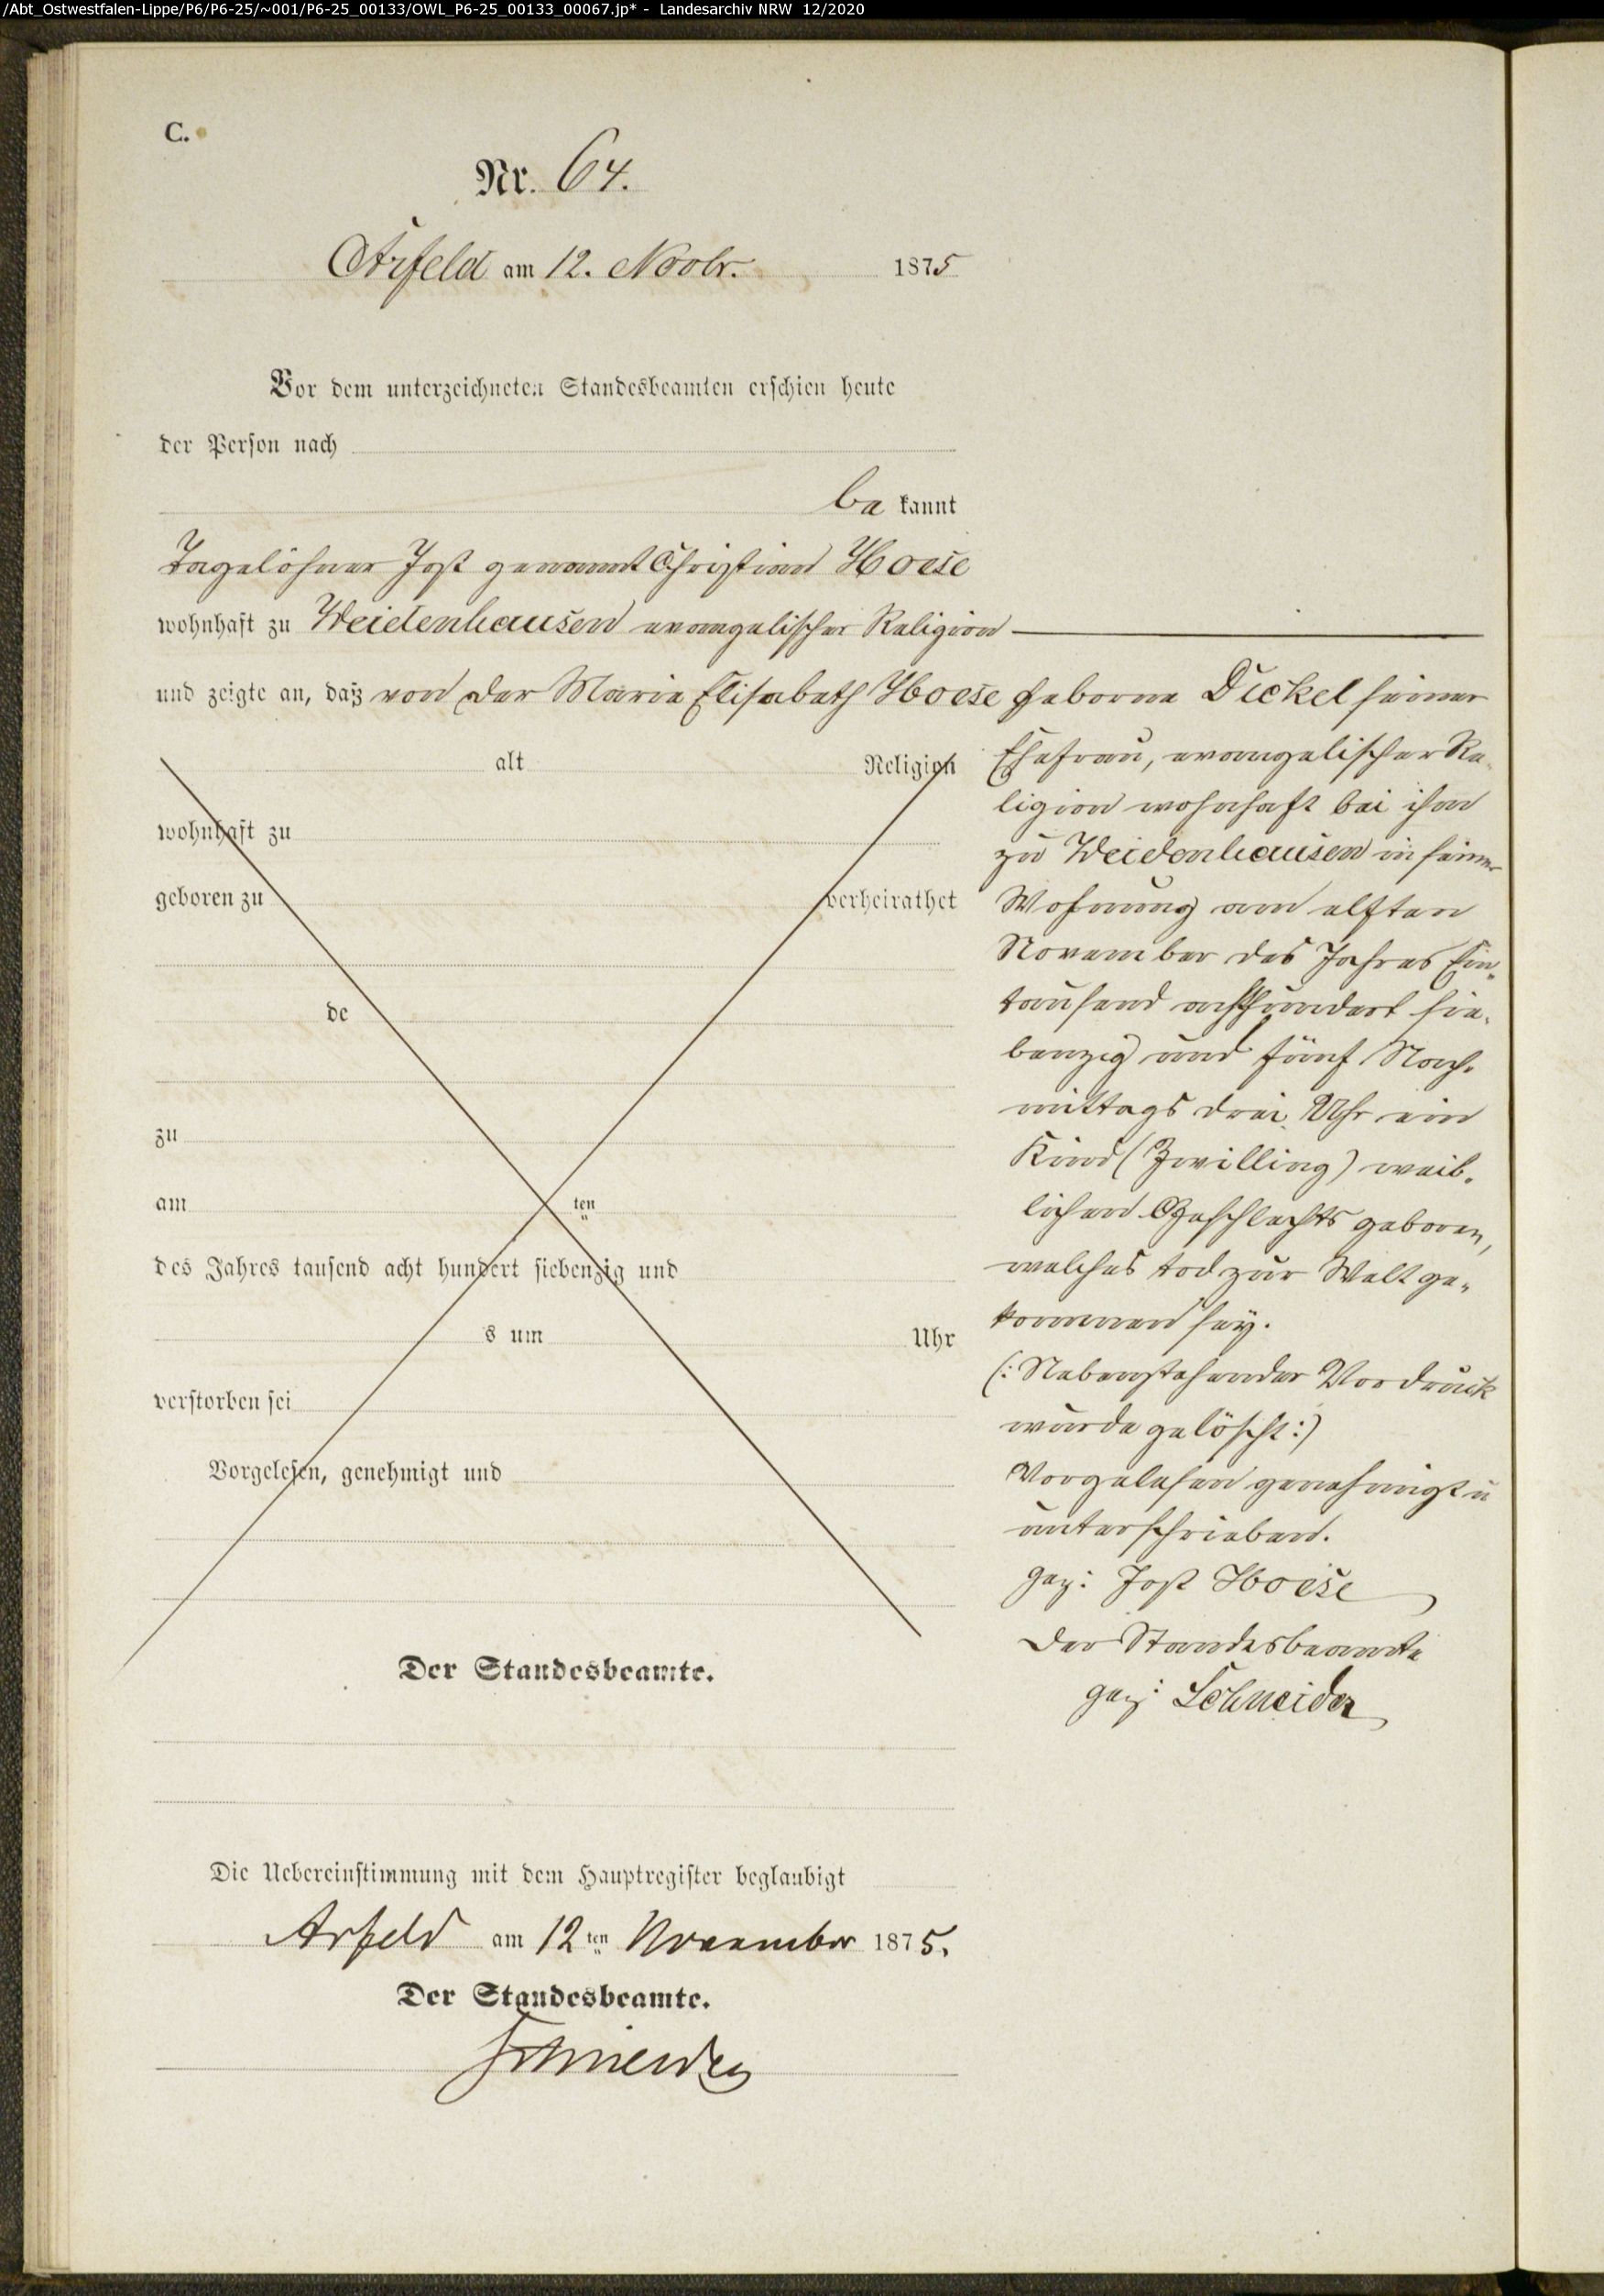 /Abt_Ostwestfalen-Lippe/P6/P6-25/~001/P6-25_00133/OWL_P6-25_00133_00067.jp* - Landesarchiv NRW 12/2020
C.
Nr. 64.
Arfeld am 12. Novbr. 1875
Vor dem unterzeichneten Standesbeamten erschien heute
der Person nach
bekannt
Tagelöhner Jost genannt Christian Hoese
wohnhaft zu Weidenhausen evangelischer Religion
und zeigte an, daß von der Maria Elisabeth Hoese geborne Dickel seiner
alt Religion
wohnhaft zu
geboren zu verheirathet
de
zu
am ten
des Jahres tausend acht hundert siebenzig und
s um Uhr
verstorben sei
Vorgelesen, genehmigt und
Der Standesbeamte.
Ehefrau, evangelischer Re-
ligion wohnhaft bei ihm
zu Weidenhausen in seiner
Wohnung am elften
November des Jahres Ein-
tausend achthundert sie-
benzig und fünf Nach-
mittags drei Uhr ein
Kind (Zwilling) weib-
lichen Geschlechts geboren,
welches tod zur Welt ge-
kommen sey.
(: Nebenstehender Vordruck
wurde gelöscht :)
Vorgelesen genehmigt u
unterschrieben.
gez: Jost Hoese
Der Standesbeamte
gez: Schneider
Die Uebereinstimmung mit dem Hauptregister beglaubigt
Arfeld am 12ten November 1875.
Der Standesbeamte.
Schneider